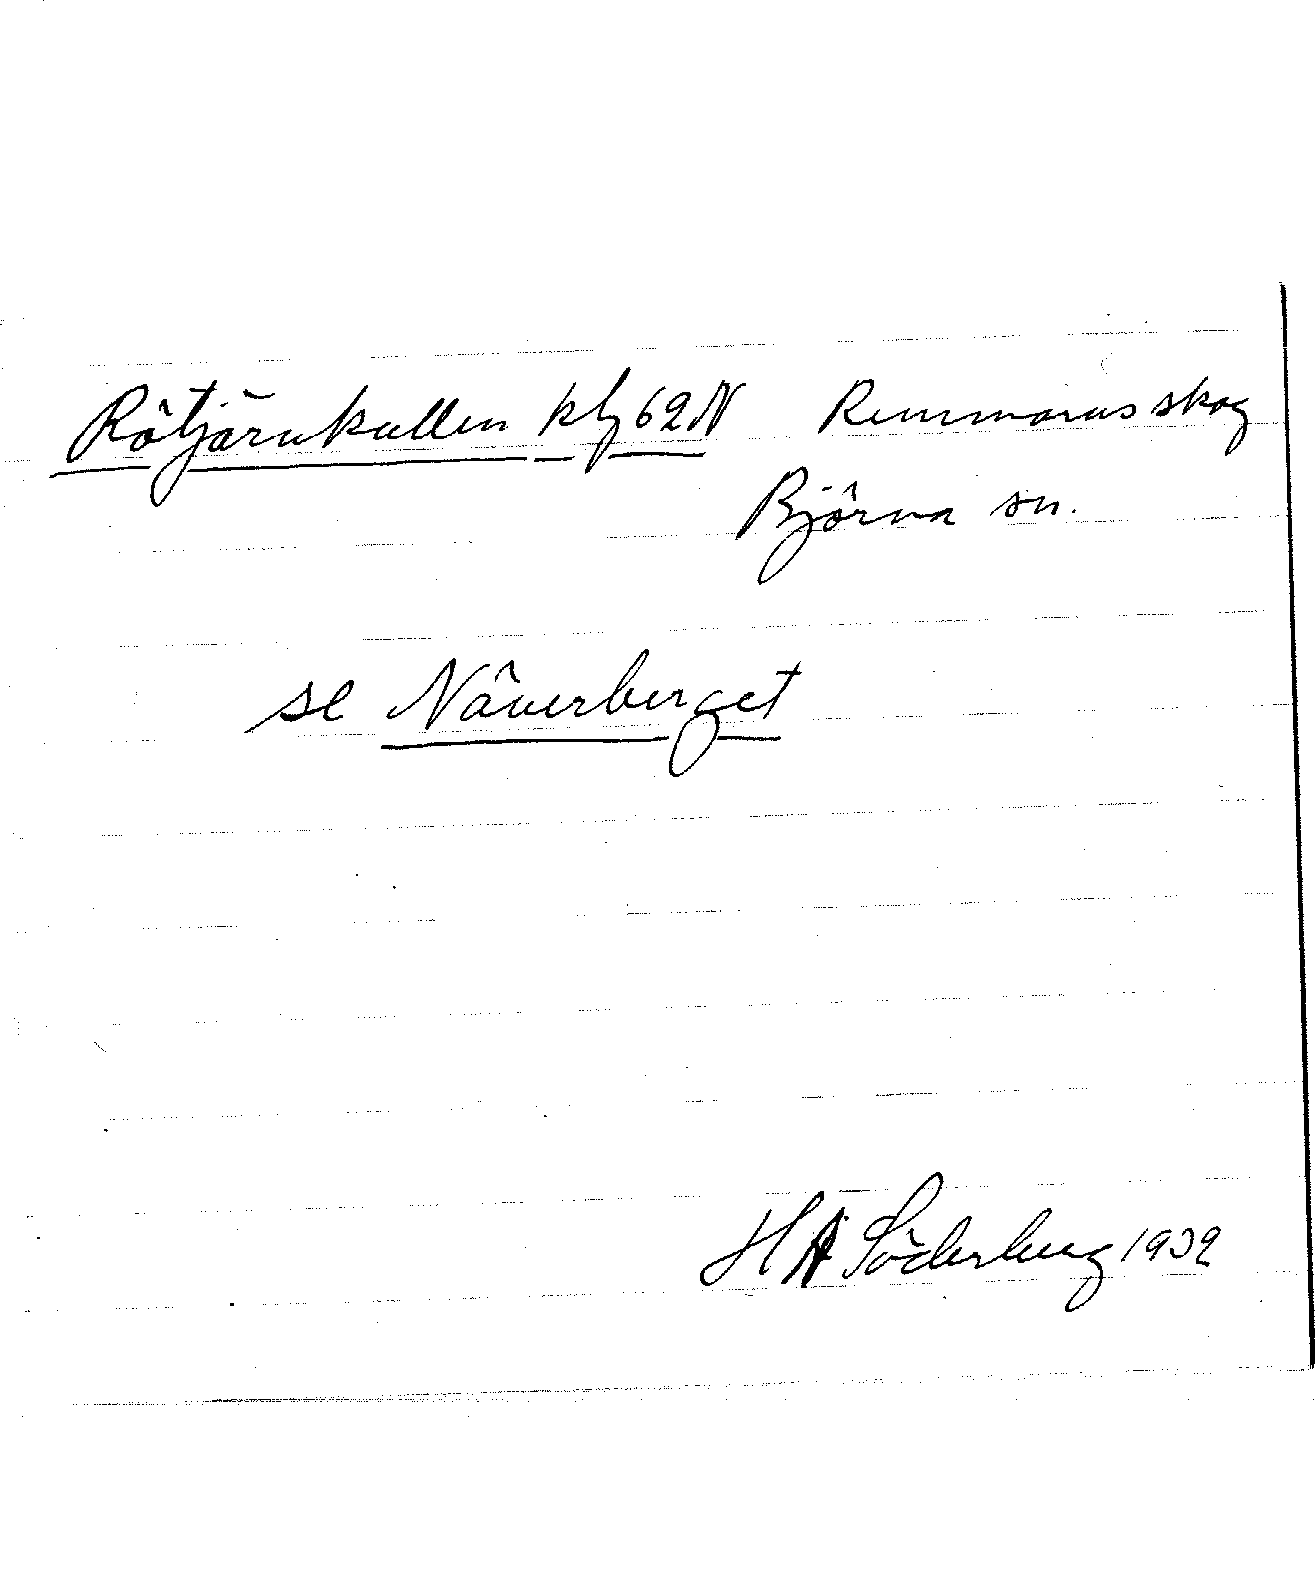 Rötjärnkullen klg 62 N Remmarns skog
Björna sn.
se Näverberget
H A Söderberg 1932